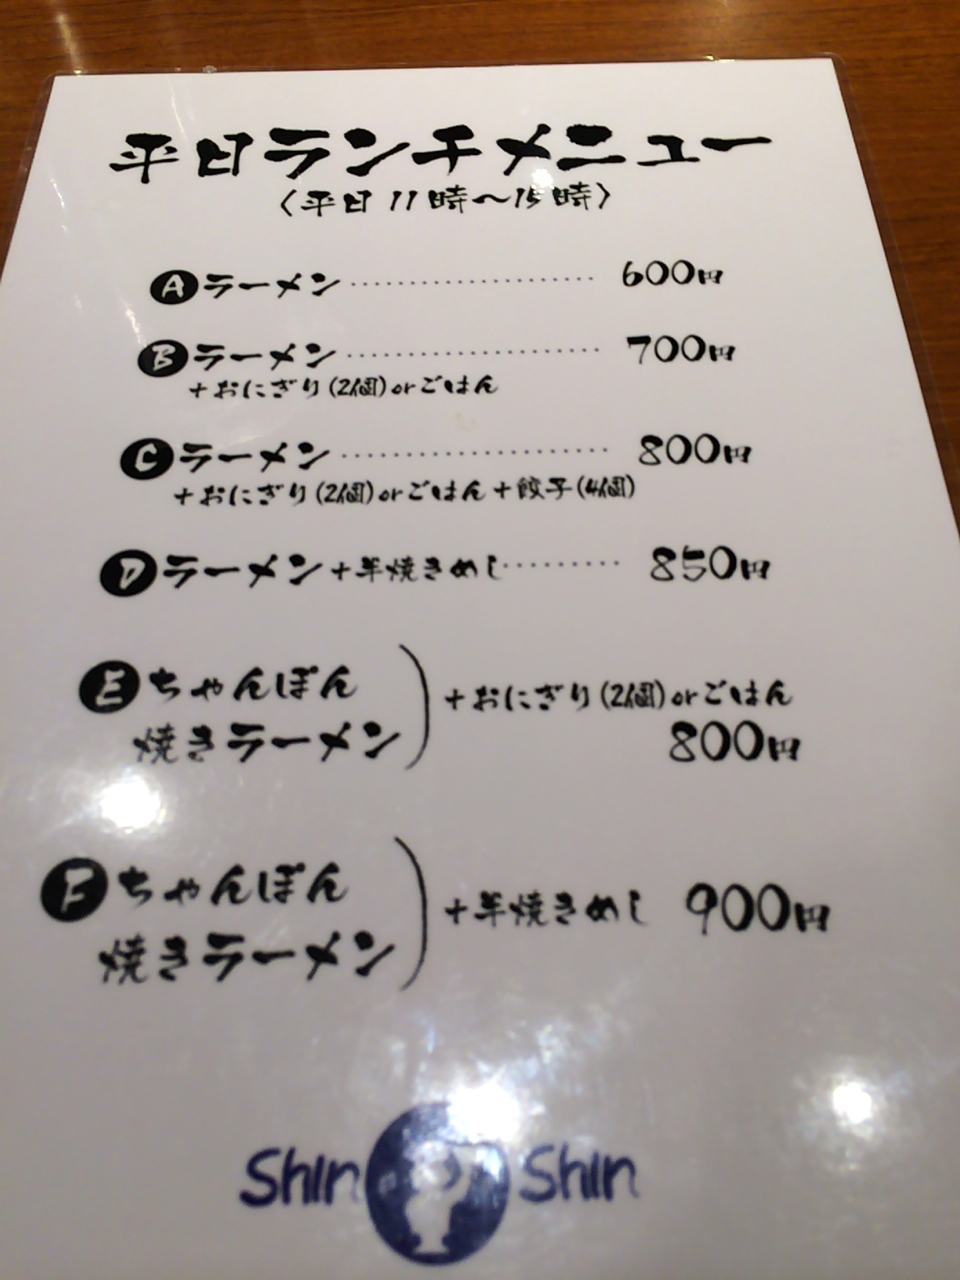 平日ランチメニュー
〈平日 11時〜15時〉
A ラーメン………………… 600円
B ラーメン………………… 700円
+おにぎり(2個)orごはん
C ラーメン………………… 800円
+おにぎり(2個)orごはん+餃子(4個)
D ラーメン+半焼きめし……… 850円
E ちゃんぽん
焼きラーメン
+おにぎり(2個)orごはん
800円
F ちゃんぽん
焼きラーメン
+半焼きめし 900円
Shin Shin